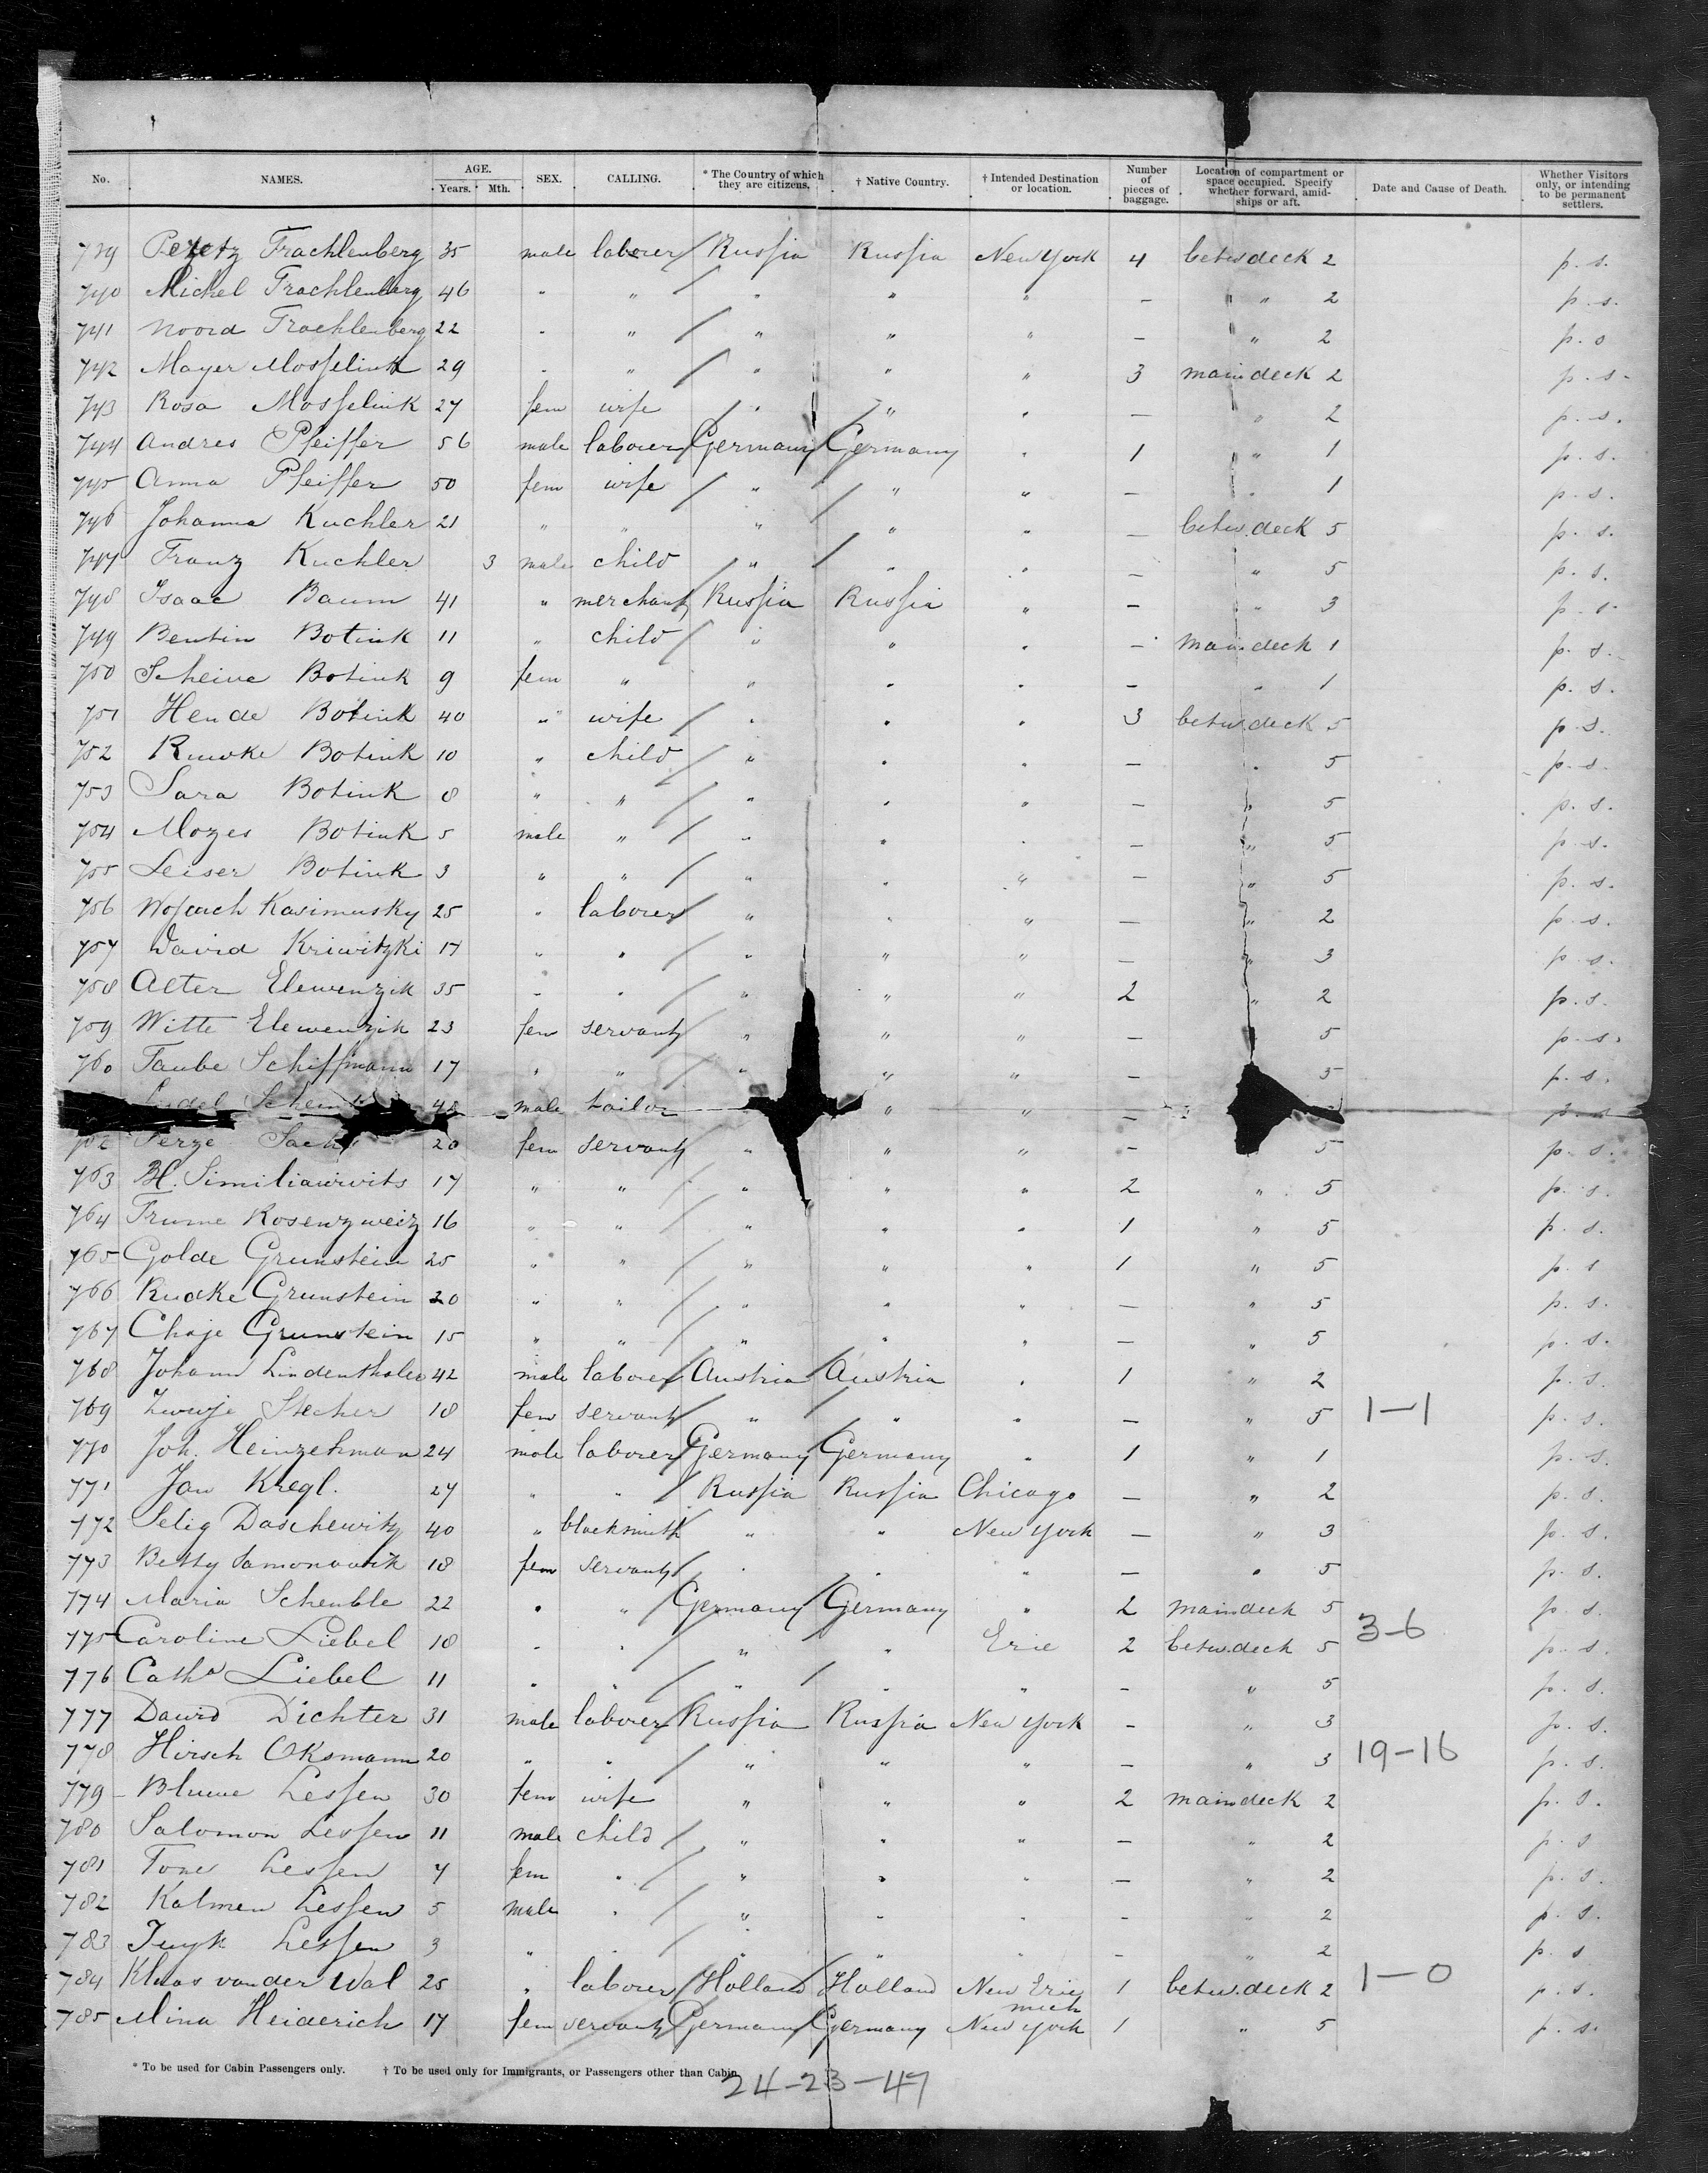 No. NAMES. AGE. Years. Mth. SEX. CALLING. * The Country of which they are citizens. † Native Country. † Intended Destination or location. Number of pieces of baggage. Location of compartment or space occupied. Specify whether forward, amidships or aft. Date and Cause of Death. Whether Visitors only, or intending to be permanent settlers.
739 Trachlenberg 35 male laborer Russia Russia New York 4 betw deck 2 p. s.
740 Michel Trachlenberg 46 " " " " " — " " 2 p. s.
741 Noord Trachlenberg 22 " " " " " — " 2 p. s
742 Mayer Mosselink 29 " " " " " 3 main deck 2 p. s.
743 Rosa Mosselink 27 fem wife " " " — " 2 p. s.
744 Andres Pfeiffer 56 male laborer Germany Germany " 1 " 1 p. s.
745 Anna Pfeiffer 50 fem wife " " " — " 1 p. s.
746 Johanna Kuchler 21 " " " " " — betw. deck 5 p. s.
747 Franz Kuchler 3 male child " " " — " 5 p. s.
748 Isaac Baum 41 " merchant Russia Russia " — " 3 p. s.
749 Bentin Botink 11 " child " " " — main deck 1 p. s.
750 Scheine Botink 9 fem " " " " — " 1 p. s.
751 Hende Botink 40 " wife " " " 3 betw deck 5 p. s.
752 Botink 10 " child " " " — " 5 p. s.
753 Sara Botink 8 " " " " " — " 5 p. s.
754 Mozes Botink 5 male " " " " — " 5 p. s.
755 Leiser Botink 3 " " " " " — " 5 p. s.
756 Kasimusky 25 " laborer " " " — " 2 p. s.
757 David Kriwitzki 17 " " " " " — " 3 p. s.
758 Alter Elewenzik 35 " " " " " 2 " 2 p. s.
759 Witte Elewenzik 23 fem servant " " " — 5 p. s.
760 Taube Schiffmann 17 " " " " " — 5 p. s.
48 male tailor " " — p. s
Sachs 20 fem servant " " " — 5 p. s.
763 17 " " " " " 2 " 5 p. s.
764 Frume Rosenzweig 16 " " " " " 1 " 5 p. s.
765 Golde Grunstein 25 " " " " " 1 " 5 p. s
766 Rudke Grunstein 20 " " " " " — " 5 p. s.
767 Chaje Grunstein 15 " " " " " — " 5 p. s.
768 Johann Lindenthaler 42 male laborer Austria Austria " 1 " 2 p. s.
769 Stecher 18 fem servant " " " — " 5 1—1 p. s.
770 Joh. Heinzelman 24 male laborer Germany Germany " 1 " 1 p. s.
771 Jan Kregl. 27 " " Russia Russia Chicago — " 2 p. s.
772 Selig Daschewitz 40 " blacksmith " " New York — " 3 p. s.
773 Betty 18 fem servant " " " — " 5 p. s.
774 Maria Scheuble 22 " " Germany Germany " 2 main deck 5 p. s.
775 Caroline Liebel 18 " " " " Erie 2 betw. deck 5 3-6 p. s.
776 Catha Liebel 11 " " " " " — " 5 p. s.
777 David Dichter 31 male laborer Russia Russia New York — " 3 p. s.
778 Hirsch Oksmann 20 " " " " " — " 3 19-16 p. s.
779 Blume Lessen 30 fem wife " " " 2 main deck 2 p. s.
780 Salomon Lessen 11 male child " " " — " 2 p. s
781 Tone Lessen 7 fem " " " " — " 2 p. s.
782 Kalmen Lessen 5 male " " " " — " 2 p. s.
783 Lessen 3 " " " " " — " 2 p. s
784 Klaas van der Wal 25 " laborer Holland Holland New Erie mich 1 betw. deck 2 1—0 p. s.
785 Mina Heiderich 17 fem servant Germany Germany New York 1 " 5 p. s.
* To be used for Cabin Passengers only. † To be used only for Immigrants, or Passengers other than Cabin.
24-23-47